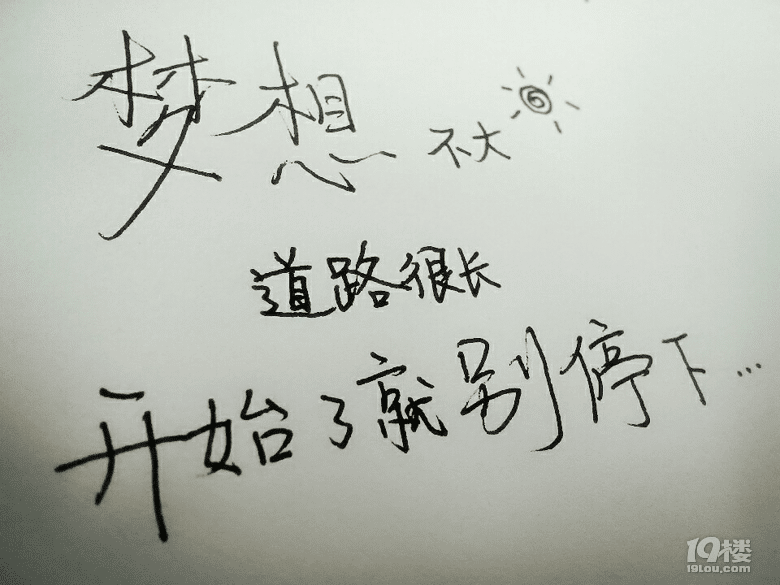 梦想不大
道路很长
开始了就别停下...
19楼
19lou.com